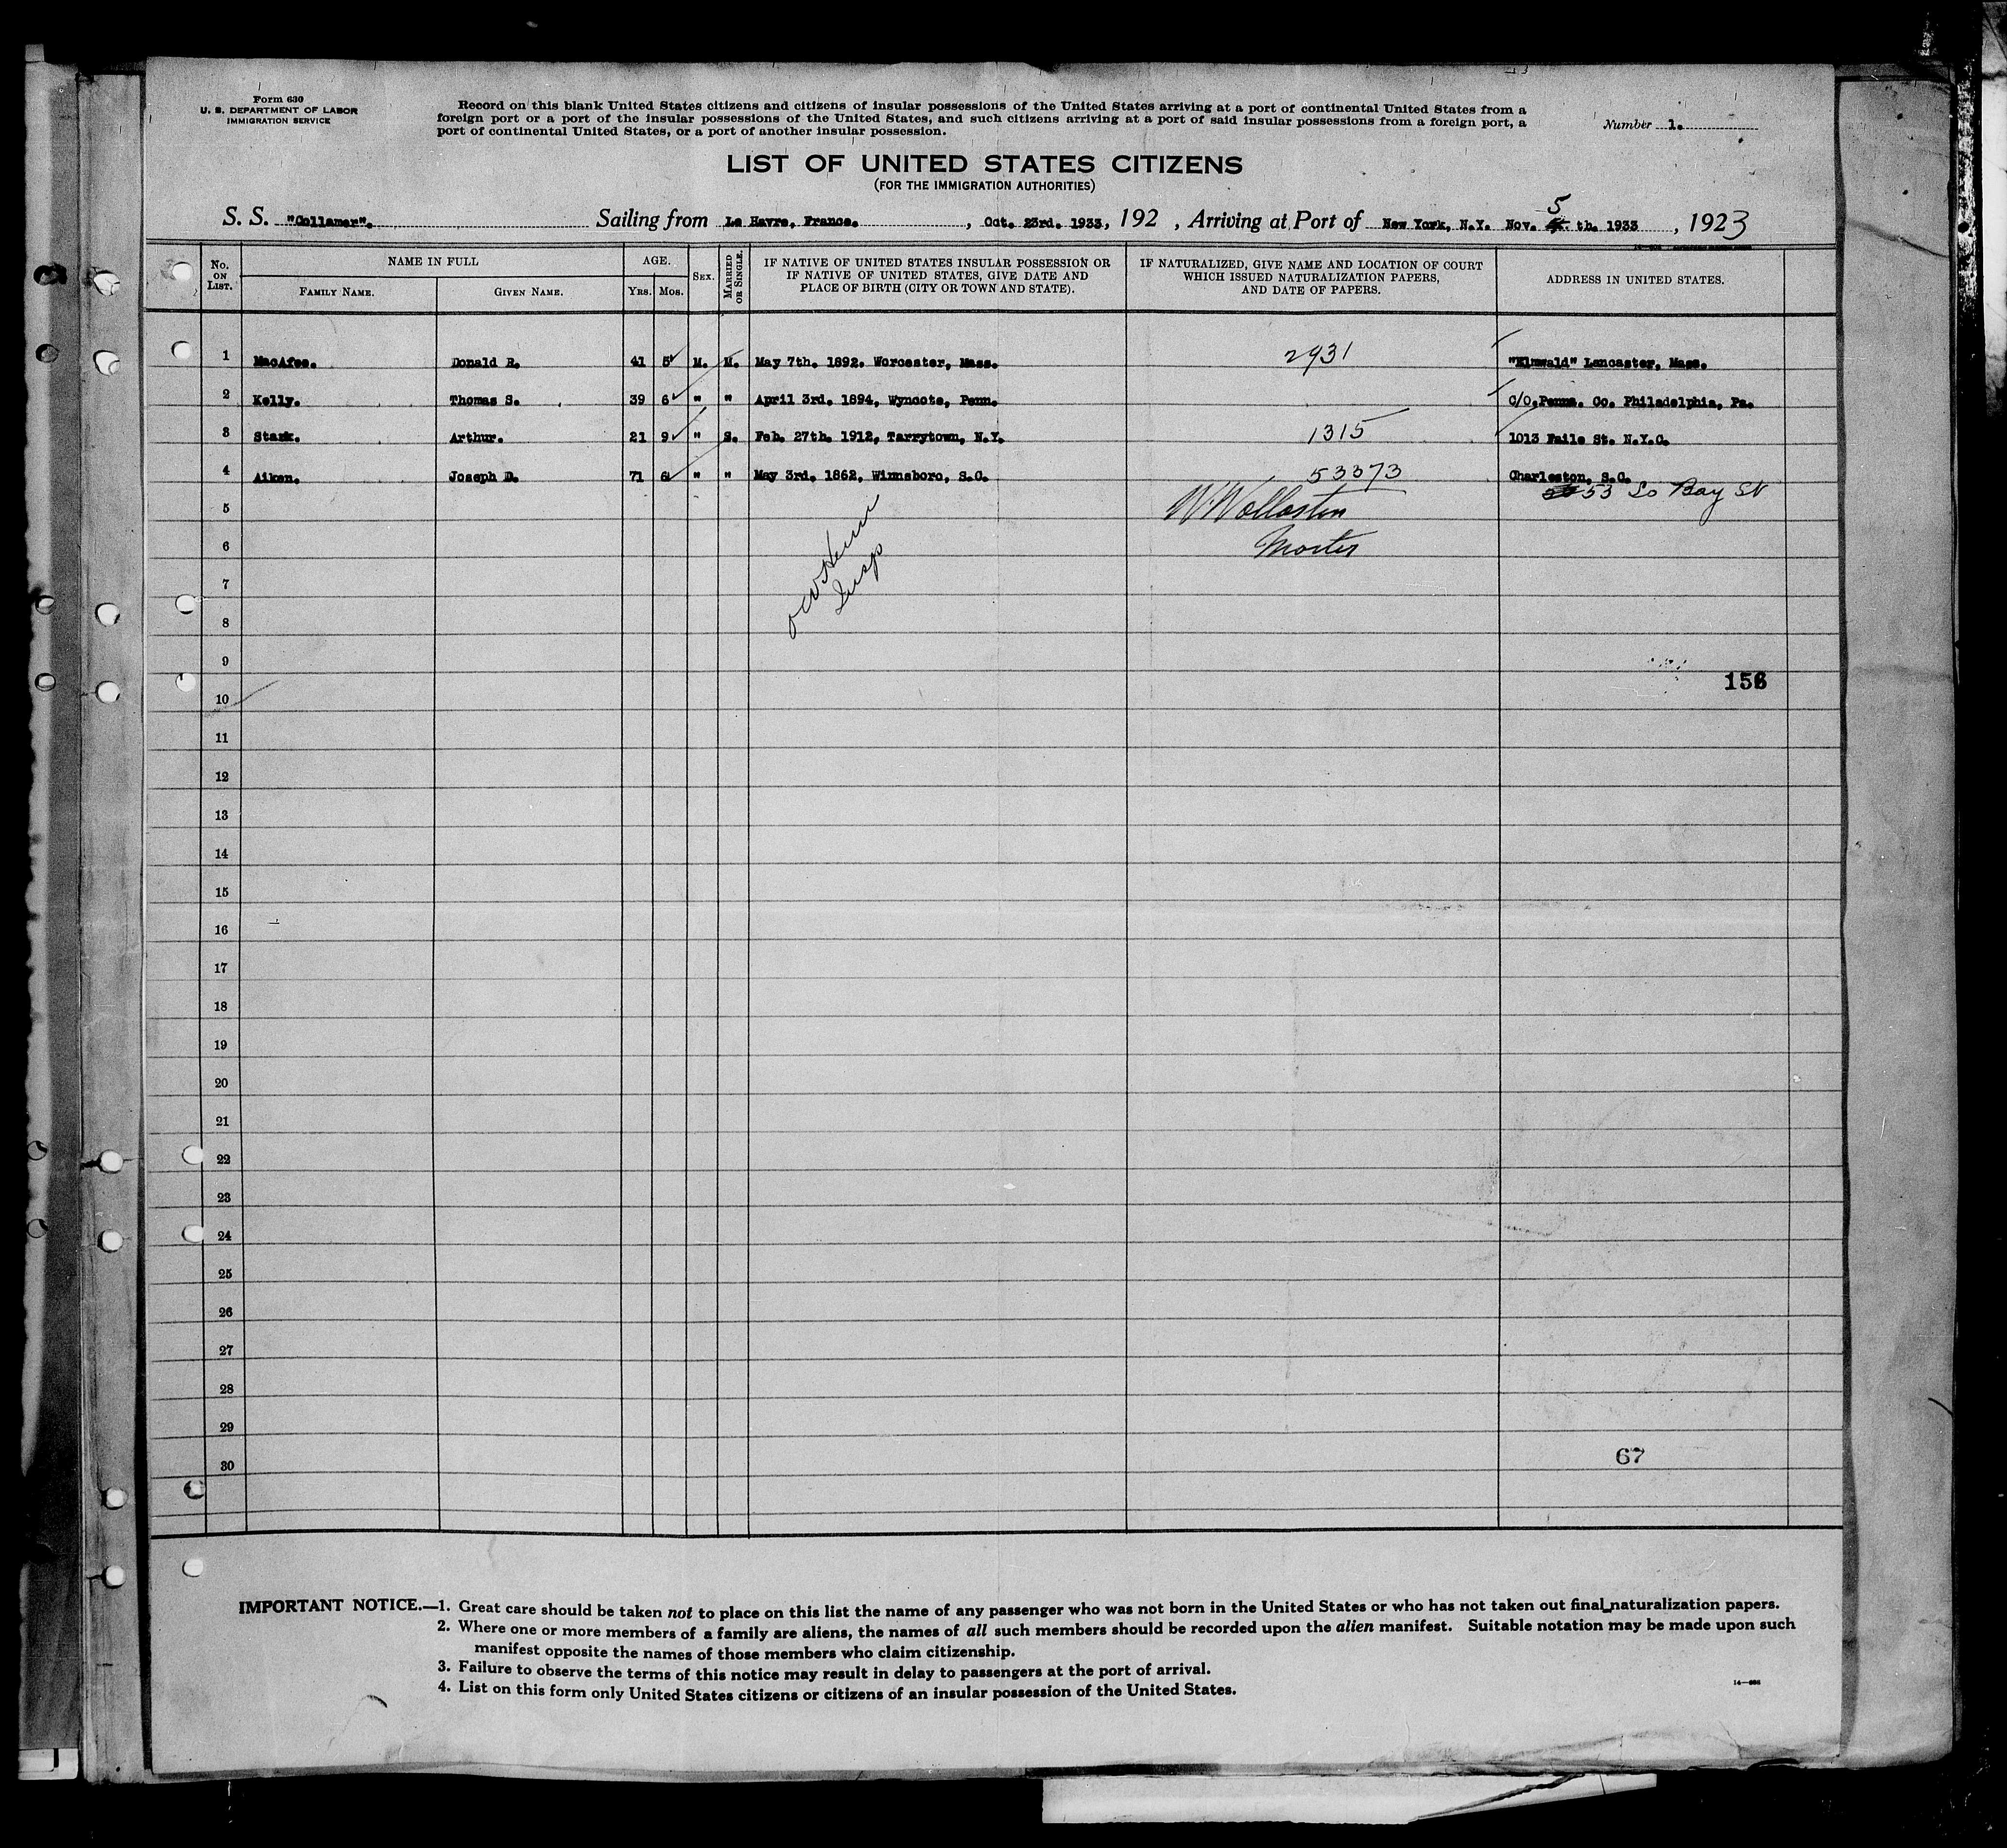 Form 630
U. S. DEPARTMENT OF LABOR
IMMIGRATION SERVICE
Record on this blank United States citizens and citizens of insular possessions of the United States arriving at a port of continental United States from a
foreign port or a port of the insular possessions of the United States, and such citizens arriving at a port of said insular possessions from a foreign port, a
port of continental United States, or a port of another insular possession.
Number 1.
LIST OF UNITED STATES CITIZENS
(FOR THE IMMIGRATION AUTHORITIES)
S. S. "Collamer". Sailing from Le Havre, France. , Oct. 23rd. 1933, 192 , Arriving at Port of New York, N.Y. Nov. 5 th. 1933 , 1923
No. ON LIST.
NAME IN FULL
FAMILY NAME.
GIVEN NAME.
AGE.
YRS.
MOS.
SEX.
MARRIED OR SINGLE.
IF NATIVE OF UNITED STATES INSULAR POSSESSION OR
IF NATIVE OF UNITED STATES, GIVE DATE AND
PLACE OF BIRTH (CITY OR TOWN AND STATE).
IF NATURALIZED, GIVE NAME AND LOCATION OF COURT
WHICH ISSUED NATURALIZATION PAPERS,
AND DATE OF PAPERS.
ADDRESS IN UNITED STATES.
1 MacAfee. Donald R. 41 5 M. M. May 7th. 1892. Worcester, Mass. 2931 "Elmwald" Lancaster, Mass.
2 Kelly. Thomas S. 39 6 " " April 3rd. 1894, Wyncote, Penn. C/O.Penna. Co. Philadelphia, Pa.
3 Stark. Arthur. 21 9 " S. Feb. 27th. 1912, Tarrytown, N.Y. 1315 1013 Faile St. N.Y.C.
4 Aiken. Joseph D. 71 6 " " May 3rd. 1862, Winnsboro, S.C. 53373 Charleston, S.C.
53 So Bay St
5 W Wollaston
6 Master
Insp
7
8
9
156
10
11
12
13
14
15
16
17
18
19
20
21
22
23
24
25
26
27
28
29
67
30
IMPORTANT NOTICE.—1. Great care should be taken not to place on this list the name of any passenger who was not born in the United States or who has not taken out final naturalization papers.
2. Where one or more members of a family are aliens, the names of all such members should be recorded upon the alien manifest. Suitable notation may be made upon such
manifest opposite the names of those members who claim citizenship.
3. Failure to observe the terms of this notice may result in delay to passengers at the port of arrival.
4. List on this form only United States citizens or citizens of an insular possession of the United States.